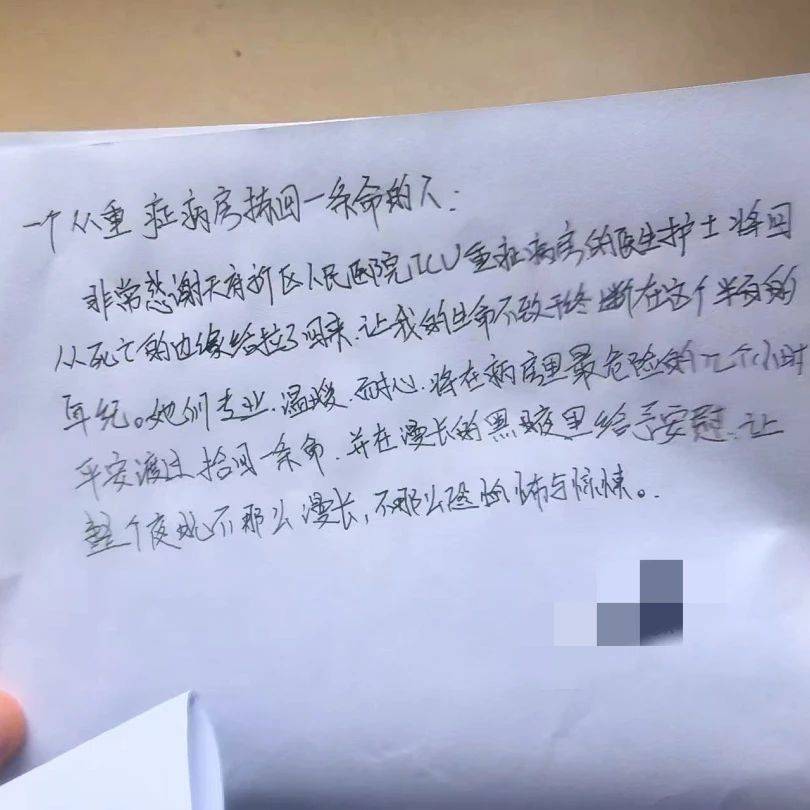 一个从重症病房捡回一条命的人:
非常感谢天府新区人民医院ICU重症病房的医生护士将因
从死亡的边缘给拉了回来.让我的生命不致于终断在这个半百的
年纪。她们专业.温暖.耐心.将在病房里最危险的几个小时
平安渡过拾回一条命.并在漫长的黑夜里给予安慰.让
整个夜晚不那么漫长,不那么恐怖与惊悚。